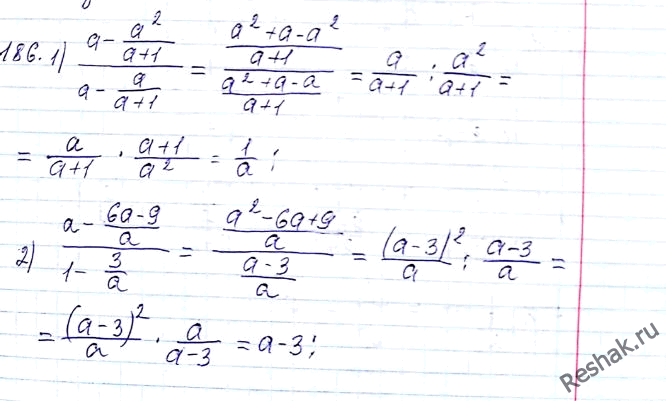 186. 1) \frac{a - \frac{a^2}{a+1}}{a - \frac{a}{a+1}} = \frac{\frac{a^2+a-a^2}{a+1}}{\frac{a^2+a-a}{a+1}} = \frac{a}{a+1} : \frac{a^2}{a+1} =
= \frac{a}{a+1} \cdot \frac{a+1}{a^2} = \frac{1}{a};
2) \frac{a - \frac{6a-9}{a}}{1 - \frac{3}{a}} = \frac{\frac{a^2-6a+9}{a}}{\frac{a-3}{a}} = \frac{(a-3)^2}{a} : \frac{a-3}{a} =
= \frac{(a-3)^2}{a} \cdot \frac{a}{a-3} = a-3;
Reshak.ru